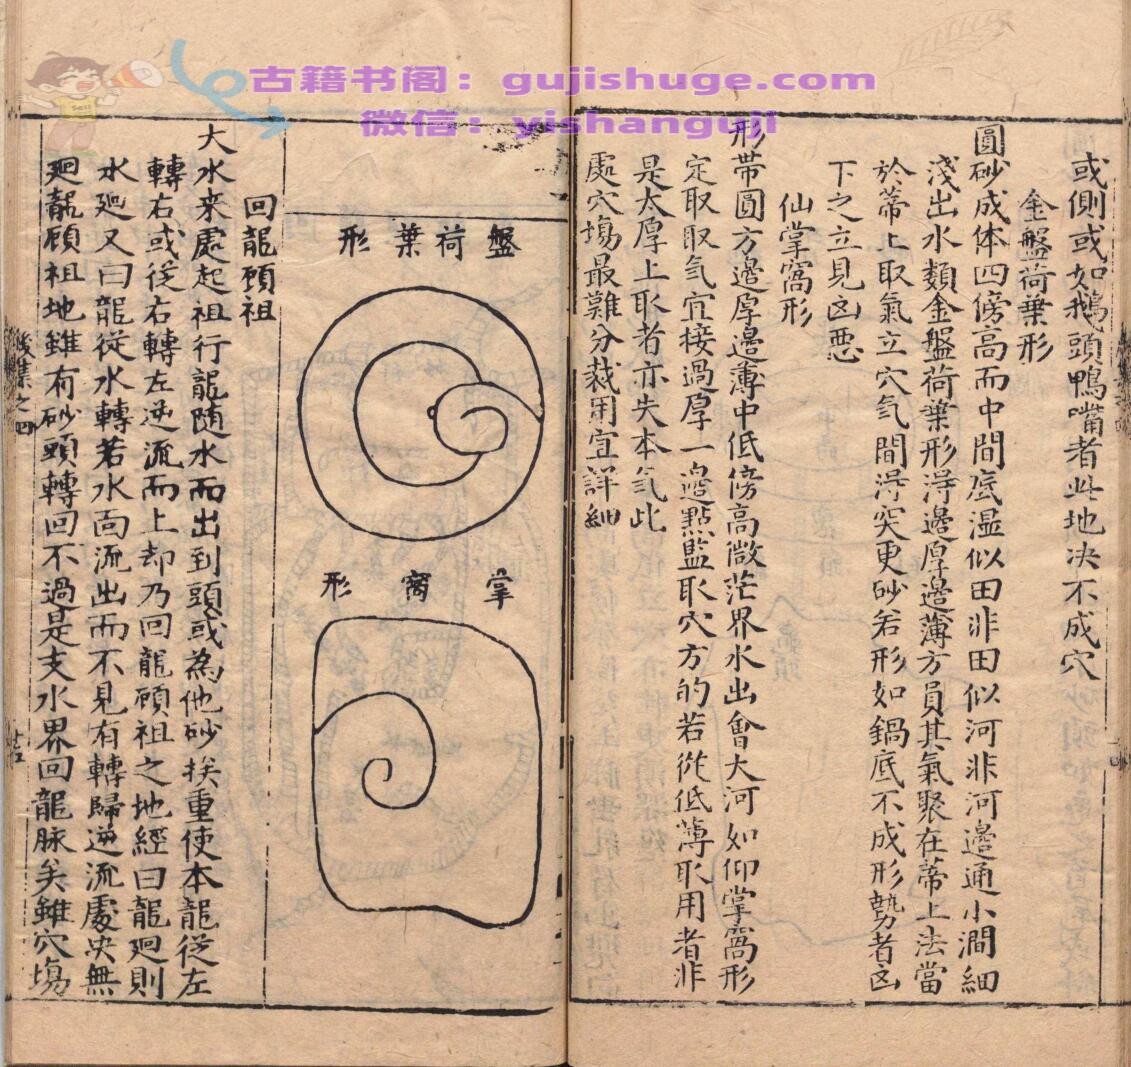 古籍书阁：gujishuge.com
微信：yishanguji
或側或如鵝頭鴨嘴者此地决不成穴
金盤荷葉形
圓砂成体四傍高而中間底湿似田非田似河非河邊通小澗細
淺出水類金盤荷葉形浔邊厚邊薄方員其氣聚在蒂上法當
於蒂上取氣立穴氣間浔突更砂若形如鍋底不成形勢者凶
下之立見凶惡
仙掌窩形
形帶圓方邊厚邊薄中低傍高微茫界水出會大河如仰掌窩形
定取取氣宜接過厚一邊點監取穴方的若從低薄取用者非
是太厚上取者亦失本氣此
處穴塲最難分裁用宜詳細
盤荷葉形
掌窩形
回龍顧祖
大水来處起祖行龍隨水而出到頭或為他砂挨重使本龍從左
轉右或從右轉左逆流而上却乃回龍顧祖之地經曰龍廻則
水廻又曰龍從水轉若水面流出而不見有轉歸逆流處决無
廻龍顧祖地雖有砂頭轉回不過是支水界回龍脉矣雖穴塲
後集之四